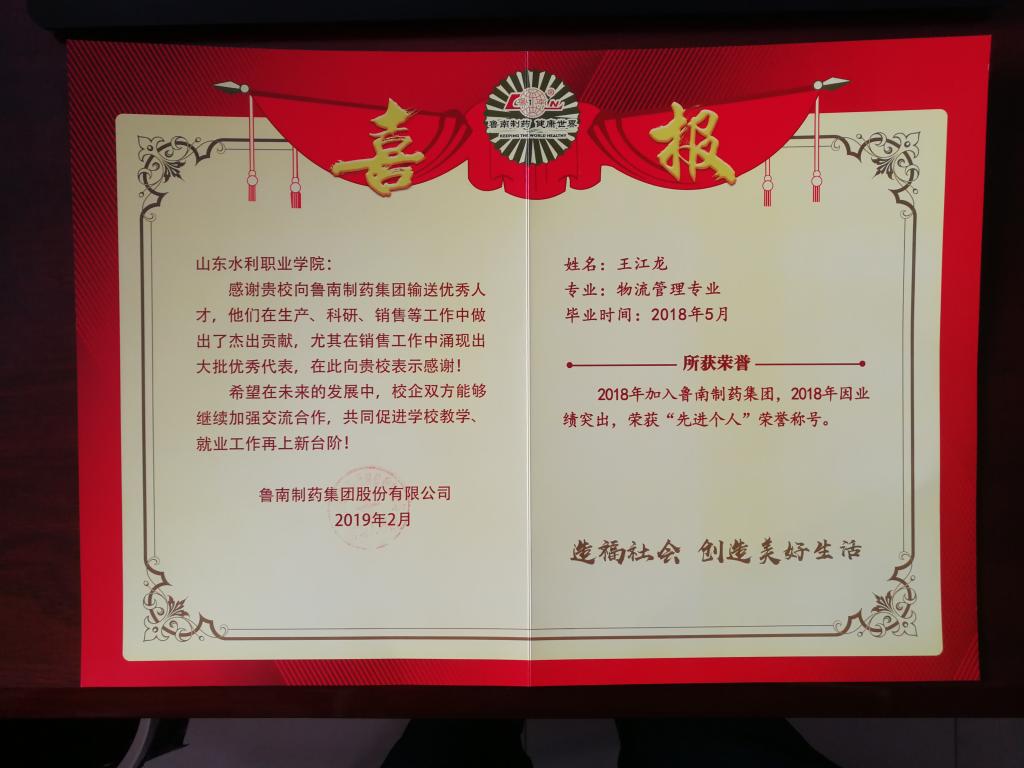 喜报
LUNAN
鲁南制药 健康世界
KEEPING THE WORLD HEALTHY
山东水利职业学院：
感谢贵校向鲁南制药集团输送优秀人
才，他们在生产、科研、销售等工作中做
出了杰出贡献，尤其在销售工作中涌现出
大批优秀代表，在此向贵校表示感谢！
希望在未来的发展中，校企双方能够
继续加强交流合作，共同促进学校教学、
就业工作再上新台阶！
鲁南制药集团股份有限公司
2019年2月
姓名：王江龙
专业：物流管理专业
毕业时间：2018年5月
所获荣誉
2018年加入鲁南制药集团，2018年因业
绩突出，荣获“先进个人”荣誉称号。
造福社会 创造美好生活